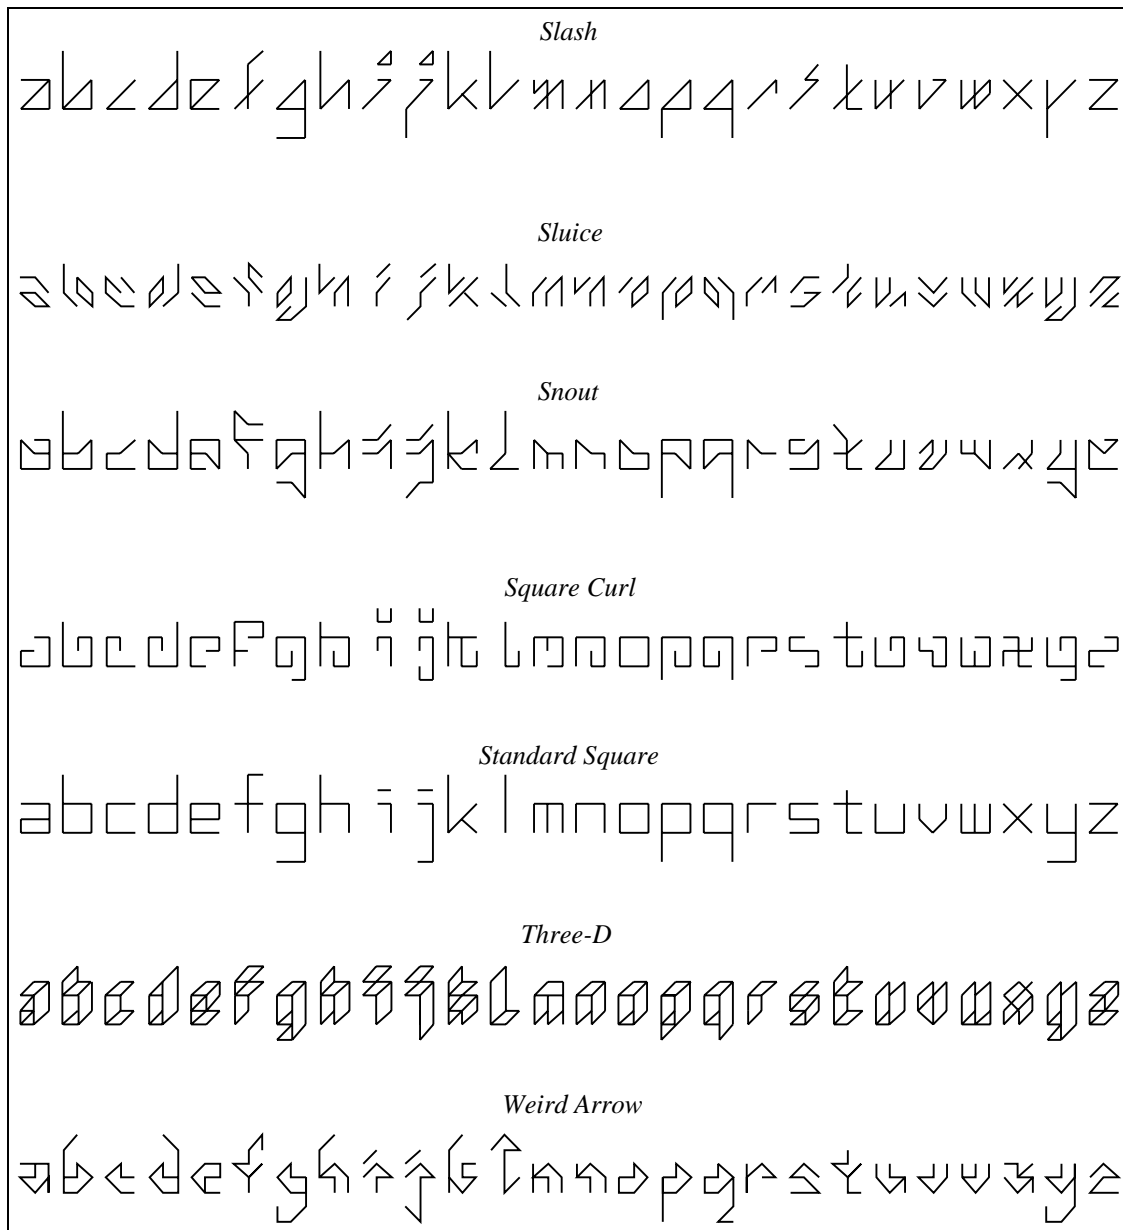 Slash
a b c d e f g h i j k l m n o p q r s t u v w x y z
Sluice
a b c d e f g h i j k l m n o p q r s t u v w x y z
Snout
a b c d e f g h i j k l m n o p q r s t u v w x y z
Square Curl
a b c d e f g h i j k l m n o p q r s t u v w x y z
Standard Square
a b c d e f g h i j k l m n o p q r s t u v w x y z
Three-D
a b c d e f g h i j k l m n o p q r s t u v w x y z
Weird Arrow
a b c d e f g h i j k l m n o p q r s t u v w x y z